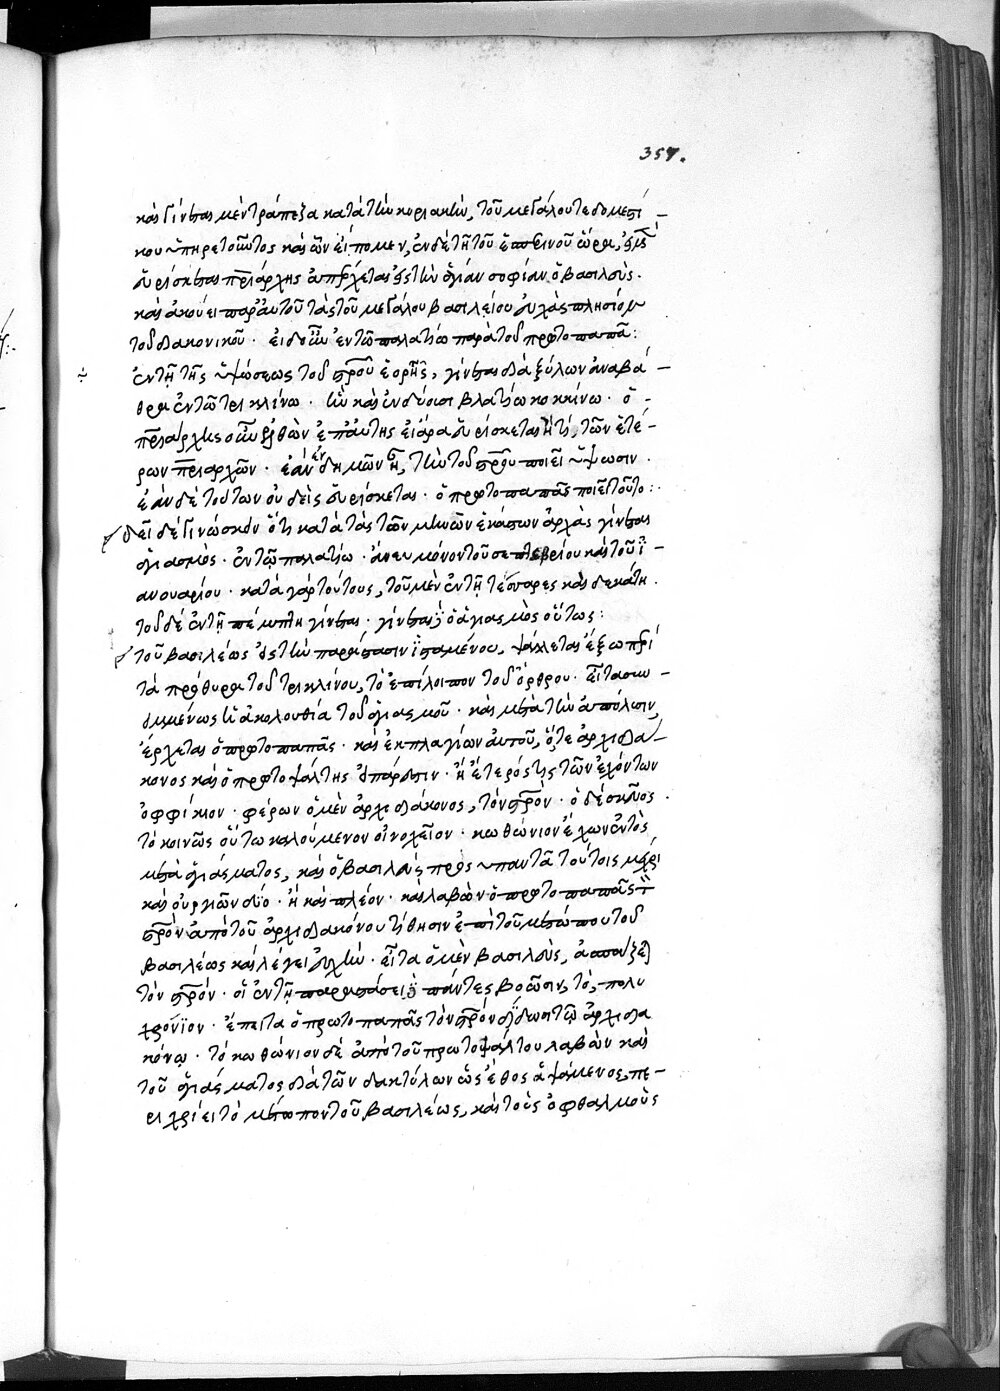 καὶ γίνεται μὲν τράπεζα κατὰ τὴν κυριακὴν, τοῦ μεγάλου τε δομεστί-
κου ὑπηρετοῦντος καὶ ὧν εἴπομεν, ἐν δὲ τῇ τοῦ ἑσπερινοῦ ὥρᾳ, εἰ μὲν
εὑρίσκεται πριάρχης ἀπέρχεται εἰς τὴν ἁγίαν σοφίαν ὁ βασιλεύς.
καὶ ἀκούει παρ' αὐτοῦ τὰς τοῦ μεγάλου βασιλείου εὐχὰς πλησίον
τοῦ διακονικοῦ. εἰ δ' οὖν ἐν τῷ παλατίῳ παρὰ τοῦ πρωτοπαπᾶ:
ἐν τῇ τῆς ὑψώσεως τοῦ σταυροῦ ἑορτῇ, γίνεται διὰ ξύλων ἀναβά-
θρα ἐν τῷ τρικλίνῳ. ἣν καὶ ἐνδύουσι βλατίῳ κοκκίνῳ. ὁ
πριάρχης οὖν ἐλθὼν ἐπ' αὐτῆς εἰ ἄρα εὑρίσκεται ἤ τις, τῶν ἑτέ-
ρων πριαρχῶν. ἐὰν ἐνδημῶν ᾖ, τὴν τοῦ σταυροῦ ποιεῖ ὕψωσιν.
ἐὰν δὲ τούτων οὐδεὶς εὑρίσκεται. ὁ πρωτοπαπᾶς ποιεῖ τοῦτο:
δεῖ δὲ γινώσκειν ὅτι κατὰ τὰς τῶν μηνῶν ἑκάστων ἀρχὰς γίνεται
ἁγιασμὸς. ἐν τῷ παλατίῳ. ἄνευ μόνον τοῦ σεπτεβρίου καὶ τοῦ ἰ-
αννουαρίου. κατὰ γὰρ τούτους, τοῦ μὲν ἐν τῇ τέσσαρες καὶ δεκάτῃ.
τοῦ δὲ ἐν τῇ πέμπτῃ γίνεται. γίνεται δὲ ὁ ἁγιασμὸς οὕτως:
τοῦ βασιλέως εἰς τὴν παράστασιν ἱσταμένου, ψάλλεται ἔξω περὶ
τὰ πρόθυρα τοῦ τρικλίνου, τὸ ἐπίλοιπον τοῦ ὄρθρου. εἶτα συν-
ημμένως ἡ ἀκολουθία τοῦ ἁγιασμοῦ. καὶ μετὰ τὴν ἀπόλυσιν,
ἔρχεται ὁ πρωτοπαπᾶς. καὶ ἐκ πλαγίων αὐτοῦ, ὅ τε ἀρχιδιά-
κονος καὶ ὁ πρωτοψάλτης εἰ πάρεστιν. ἢ ἕτερός τις τῶν ἐχόντων
ὀφφίκιον. φέρων ὁ μὲν ἀρχιδιάκονος, τὸν σταυρόν. ὁ δὲ σκεῦος.
τὸ κοινῶς οὕτω καλούμενον οἰνοχεῖον. κωθώνιον ἔχων ἐντὸς
μετὰ ἁγιάσματος, καὶ ὁ βασιλεὺς πρὸς ὑπαντᾷ τούτοις μέχρι
καὶ ὀργιῶν δύο. ἢ καὶ πλέον. καὶ λαβὼν ὁ πρωτοπαπᾶς τὸν
σταυρὸν ἀπὸ τοῦ ἀρχιδιακόνου τίθησιν ἐπὶ τοῦ μετώπου τοῦ
βασιλέως καὶ λέγει εὐχὴν. εἶτα ὁ μὲν βασιλεὺς, ἀσπάζεται
τὸν σταυρόν. οἱ ἐν τῇ παραστάσει δὲ πάντες βοῶσιν, τὸ, πολυ
χρόνιον. ἔπειτα ὁ πρωτοπαπᾶς τὸν σταυρὸν δίδωσι τῷ ἀρχιδια
κόνῳ. τὸ κωθώνιον δὲ ἀπὸ τοῦ πρωτοψάλτου λαβὼν καὶ
τοῦ ἁγιάσματος διὰ τῶν δακτύλων ὡς ἔθος ἁψάμενος, πε-
ριχρίει τὸ μέτωπον τοῦ βασιλέως, καὶ τοὺς ὀφθαλμοὺς